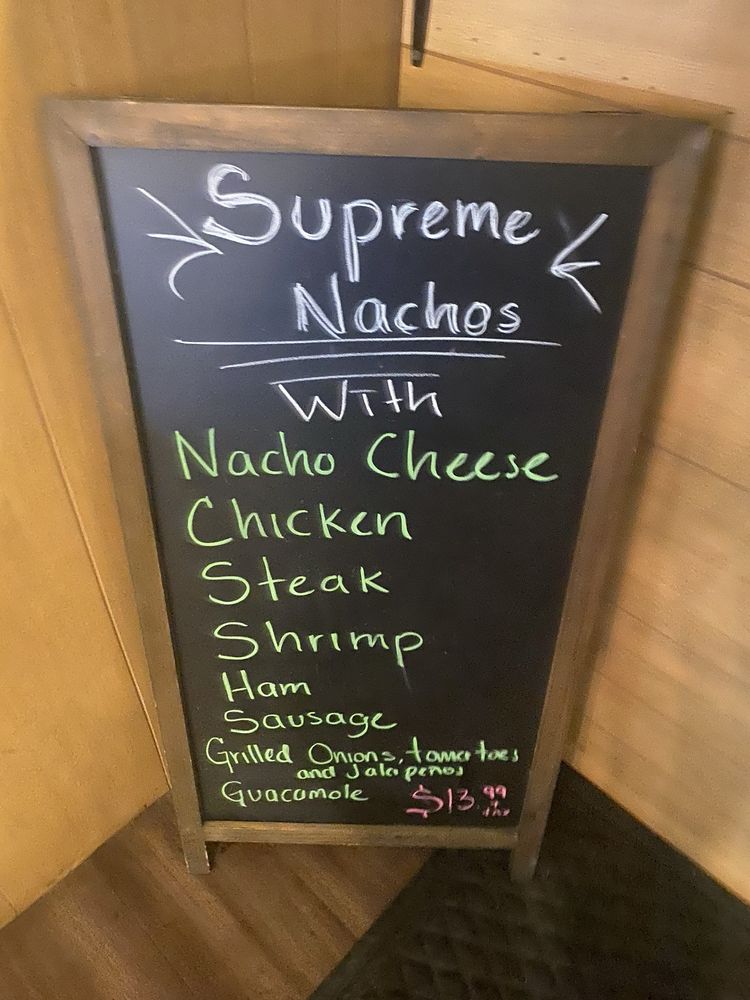 Supreme
Nachos
With
Nacho Cheese
Chicken
Steak
Shrimp
Ham
Sausage
Grilled Onions, tomatoes
and Jalapenos
Guacamole $13.99